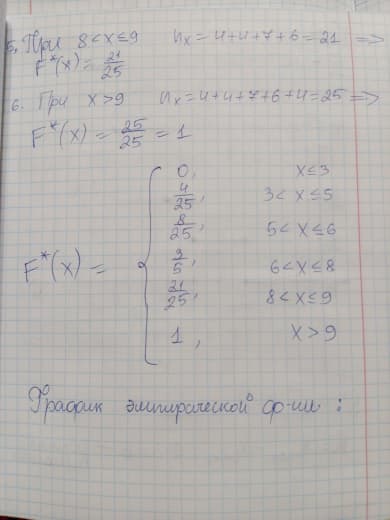 5. При 8<x≤9 nx=4+4+7+6=21 =>
F*(x)=21/25
6. При x>9 nx=4+4+7+6+4=25 =>
F*(x)=25/25=1
0, x≤3
4/25, 3<x≤5
8/25, 5<x≤6
F*(x)= 9/5, 6<x≤8
21/25, 8<x≤9
1, x>9
График эмпирической ф-ии: